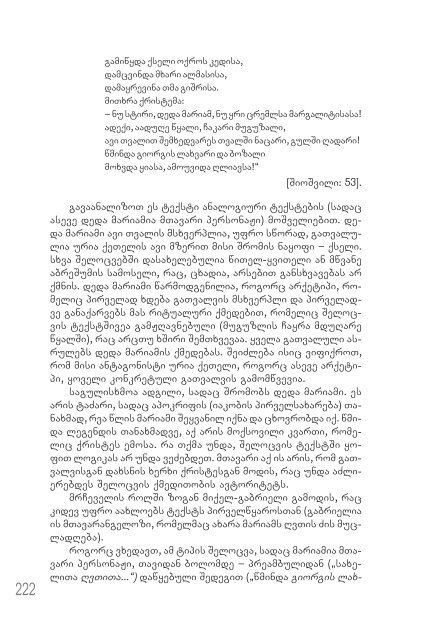 გამიწყდა ქსელი ოქროს კედისა,
დამცვინდა მხარი ალმასისა,
დამაყრევინა თმა გიშრისა.
მითხრა ქრისტემა:
– ნუ სტირი, დედა მარიამ, ნუ ყრი ცრემლსა მარგალიტისასა!
ადექი, აადუღე წყალი, ჩაკარი მუგუზალი,
ავი თვალით შემხედვარეს თვალში ნაცარი, გულში ღადარი!
წმინდა გიორგის ლახვარი და ბოზალი
მოხვდა ყიასა, ამოუვიდა ღლიავსა!“
[შიოშვილი: 53].
გავაანალიზოთ ეს ტექსტი ანალოგიური ტექსტების (სადაც
ასევე დედა მარიამია მთავარი პერსონაჟი) მოშველიებით. დე-
და მარიამი ავი თვალის მსხვერპლია, უფრო სწორად, გათვალუ-
ლია ურია ქეთელის ავი მზერით მისი შრომის ნაყოფი – ქსელი.
სხვა შელოცვებში დასახელებულია წითელ-ყვითელი ან მწვანე
აბრეშუმის სამოსელი, რაც, ცხადია, არსებით განსხვავებას არ
ქმნის. დედა მარიამი წარმოდგენილია, როგორც არქეტიპი, რო-
მელიც პირველად ხდება გათვალვის მსხვერპლი და პირველად-
ვე განაქარვებს მას რიტუალური ქმედებით, რომელიც შელოც-
ვის ტექსტშივეა გამჟღავნებული (მუგუზლის ჩაყრა მდუღარე
წყალში), რაც არცთუ ხშირი შემთხვევაა. ყველა გათვალული ას-
რულებს დედა მარიამის ქმედებას. შეიძლება ისიც ვიფიქროთ,
რომ მისი ანტაგონისტი ურია ქეთელი, როგორც ასევე არქეტი-
პი, ყოველი კონკრეტული გათვალვის გამომწვევია.
საგულისხმოა ადგილი, სადაც შრომობს დედა მარიამი. ეს
არის ტაძარი, სადაც აპოკრიფის (იაკობის პირველსახარება) თა-
ნახმად, რვა წლის მარიამი შეყვანილ იქნა და ცხოვრობდა იქ. წმი-
და ლეგენდის თანახმადვე, აქ არის მოქსოვილი კვართი, რომე-
ლიც ქრისტეს ემოსა. რა თქმა უნდა, შელოცვის ტექსტში ყო-
ფით ლოგიკას არ უნდა ვეძებდეთ. მთავარი აქ ის არის, რომ გათ-
ვალვისგან დახსნის ხერხი ქრისტესგან მოდის, რაც უნდა აძლი-
ერებდეს შელოცვის ქმედითობის ავტორიტეტს.
მრჩეველის როლში ზოგან მიქელ-გაბრიელი გამოდის, რაც
კიდევ უფრო აახლოებს ტექსტს პირველწყაროსთან (გაბრიელია
ის მთავარანგელოზი, რომელმაც ახარა მარიამს ღვთის ძის მუც-
ლადღება).
როგორც ვხედავთ, ამ ტიპის შელოცვა, სადაც მარიამია მთა-
ვარი პერსონაჟი, თავიდან ბოლომდე – პრეამბულიდან („სახე-
ლითა ღვთითა...“) დაწყებული შედეგით („წმინდა გიორგის ლახ-
222